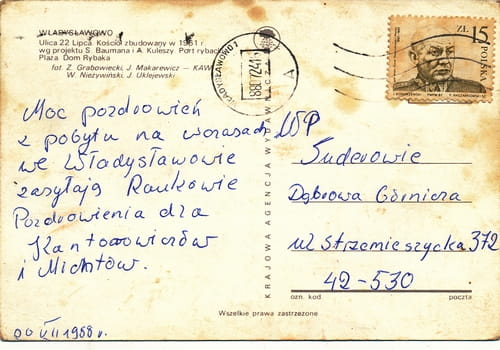 WŁADYSŁAWOWO
Ulica 22 Lipca. Kościół zbudowany w 1961 r.
wg projektu S. Baumana i A. Kuleszy. Port rybacki
Plaża Dom Rybaka
fot. Z. Grabowiecki, J. Makarewicz — KAW
W. Nieżywiński, J. Uklejewski
WŁADYSŁAWOWO 1
A
ZŁ 15
POLSKA
Moc pozdrowień
z pobytu na wczasach
we Władysławowie
zasyłają Raukowie
Pozdrowienia dla
i Michtów.
20 VII 1988 r.
KRAJOWA AGENCJA WYDAWNICZA
WP
Suderowie
Dąbrowa Górnicza
ul Strzemieszycka 372
42-530
ozn. kod
poczta
Wszelkie prawa zastrzeżone